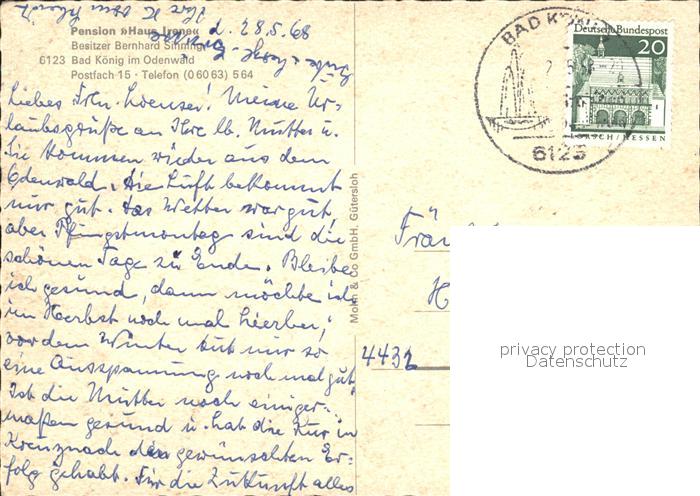 Pension »Haus Irene«
Besitzer Bernhard
6123 Bad König im Odenwald
Postfach 15 · Telefon (0 60 63) 5 64
d. 28.5.68
Liebes Frln. ! Meine Ur-
laubsgrüße an Ihre lb. Mutter u.
Sie kommen wieder aus dem
Odenwald. Die Luft bekommt
mir gut. Das Wetter war gut,
aber Pfingstmontag sind die
schönen Tage zu Ende. Bleibe
ich gesund, dann möchte ich
im Herbst noch mal hierher,
vor dem Winter tut mir so
eine Ausspannung noch mal gut.
Ist die Mutter noch einiger-
maßen gesund u. hat die Kur in
Kreuznach den gewünschten Er-
folg gehabt. Für die Zukunft alles
Mohn & Co GmbH. Gütersloh
BAD KÖNIG
6123
Deutsche Bundespost
20
LORSCH/HESSEN
Frä
H
4432
privacy protection
Datenschutz